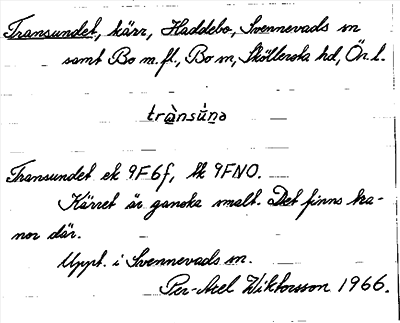 Transundet, kärr, Haddebo, Svennevads sn
samt Bo m.fl., Bo sn, Sköllerska hd, Ör. l.
trànsún̥ə
Transundet ek 9F6f, tk 9FNO.
Kärret är ganska smalt. Det finns tra-
nor där.
Uppt. i Svennevads sn.
Per-Axel Wiktorsson 1966.